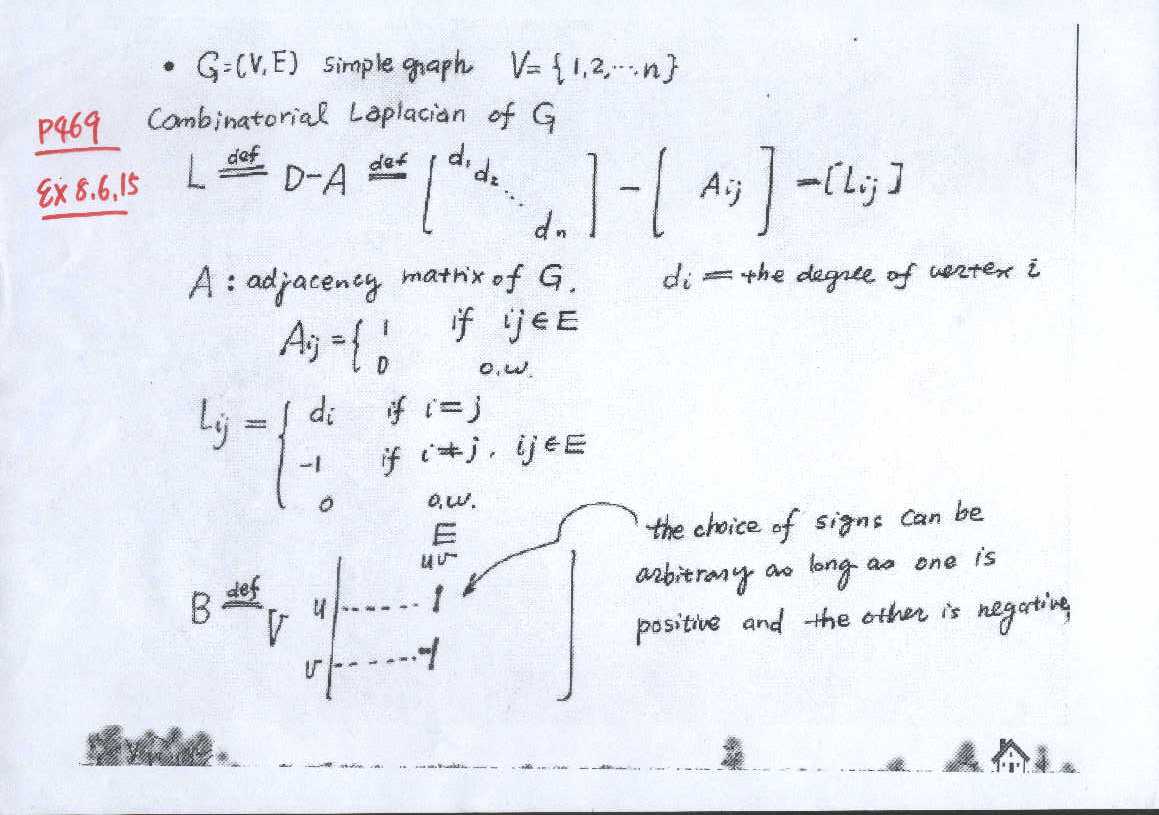 • G=(V,E) simple graph V={1,2,…n}
P469 Combinatorial Laplacian of G
Ex 8.6.15 L def= D-A def= [d₁ d₂ ⋱ dₙ] - [Aij] -[Lij]
A : adjacency matrix of G. di = the degree of vertex i
Aij = { 1 if ij∈E
0 o.w.
Lij = { di if i=j
-1 if i≠j, ij∈E
0 o.w.
E
uv
B def= V
u ------- 1
v ------- -1
the choice of signs can be
arbitrary as long as one is
positive and the other is negative,